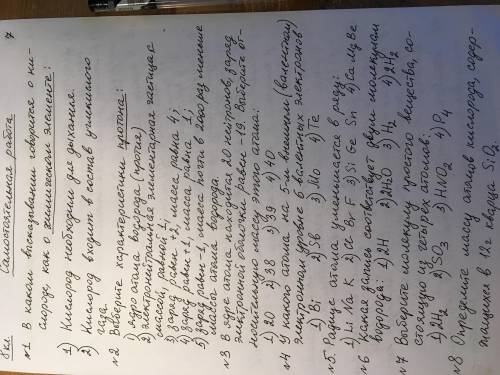 7
8 кл.
Самостоятельная работа
№1 В каком высказывании говорится о ки-
слороде, как о химическом элементе:
1) Кислород необходим для дыхания.
2) Кислород входит в состав углекислого
газа.
№2 Выберите характеристики протона:
1) ядро атома водорода (протия)
2) электронейтральная элементарная частица с
массой, равной 1;
3) заряд равен +2, масса равна 4;
4) заряд равен +1, масса равна 1;
5) заряд равен -1, масса почти в 2000 раз меньше
массы атома водорода
№3 В ядре атома находятся 20 нейтронов, заряд
электронной оболочки равен -19. Выберите от-
носительную массу этого атома:
1) 20 2) 38 3) 39 4) 40
№4 У какого атома на 5-м внешнем (валентном)
электронном уровне 6 валентных электронов
1) Bi 2) Sb 3) Mo 4) Te
№5 Радиус атома уменьшается в ряду:
1) Li Na K 2) Cl Br F 3) Si Ge Sn 4) Ca Mg Be
№6 Какая запись соответствует двум молекулам
водорода: 1) 2H 2) 2H2O 3) H2 4) 2H2
№7 Выберите молекулу простого вещества, со-
стоящую из четырёх атомов:
1) 2H2 2) SO3 3) HNO2 4) P4
№8 Определите массу атомов кислорода, содер-
жащихся в 12 г кварца SiO2.